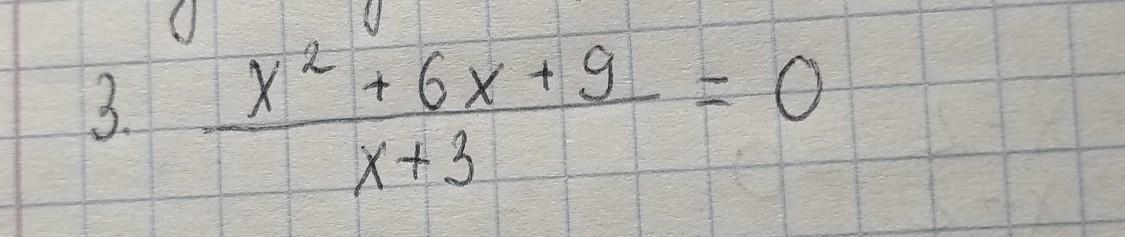 3. x² + 6x + 9 / x + 3 = 0